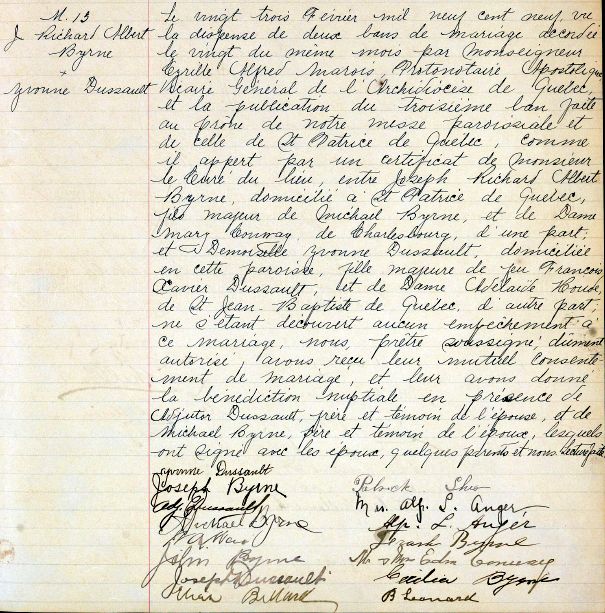 M. 13
J Richard Albert
Byrne
+
Yvonne Dussault
Le vingt trois Février mil neuf cent neuf, vu
la dispense de deux bans de mariage accordée
le vingt du même mois par Monseigneur
Cyrille Alfred Marois Protonotaire Apostolique
Vicaire Général de l'Archidiocèse de Québec,
et la publication du troisième ban faite
au prône de notre messe paroissiale et
de celle de St Patrice de Québec, comme
il appert par un certificat de Monsieur
le Curé du lieu, entre Joseph Richard Albert
Byrne, domicilié à St Patrice de Québec,
fils majeur de Michael Byrne, et de Dame
Mary Conway, de Charlesbourg, d'une part,
et Demoiselle Yvonne Dussault, domiciliée
en cette paroisse, fille majeure de feu François
Xavier Dussault, et de Dame Adelaide Houde,
de St Jean-Baptiste de Québec, d'autre part;
ne s'étant découvert aucun empêchement à
ce mariage, nous, prêtre soussigné, dûment
autorisé, avons reçu leur mutuel consente
ment de mariage, et leur avons donné
la bénédiction nuptiale en présence de
Adjutor Dussault, frère et témoin de l'épouse, et de
Michael Byrne, père et témoin de l'époux, lesquels
ont signé avec les époux, quelques parents et nous. Lecture faite
Yvonne Dussault
Joseph Byrne
Adj Dussault
Michael Byrne
John Byrne
Joseph Dussault
Mrs. Alf. L. Anger
Alf. L. Anger
Joseph Byrne
Mr & Mrs Edm
Cecilia Byrne
B Leonard